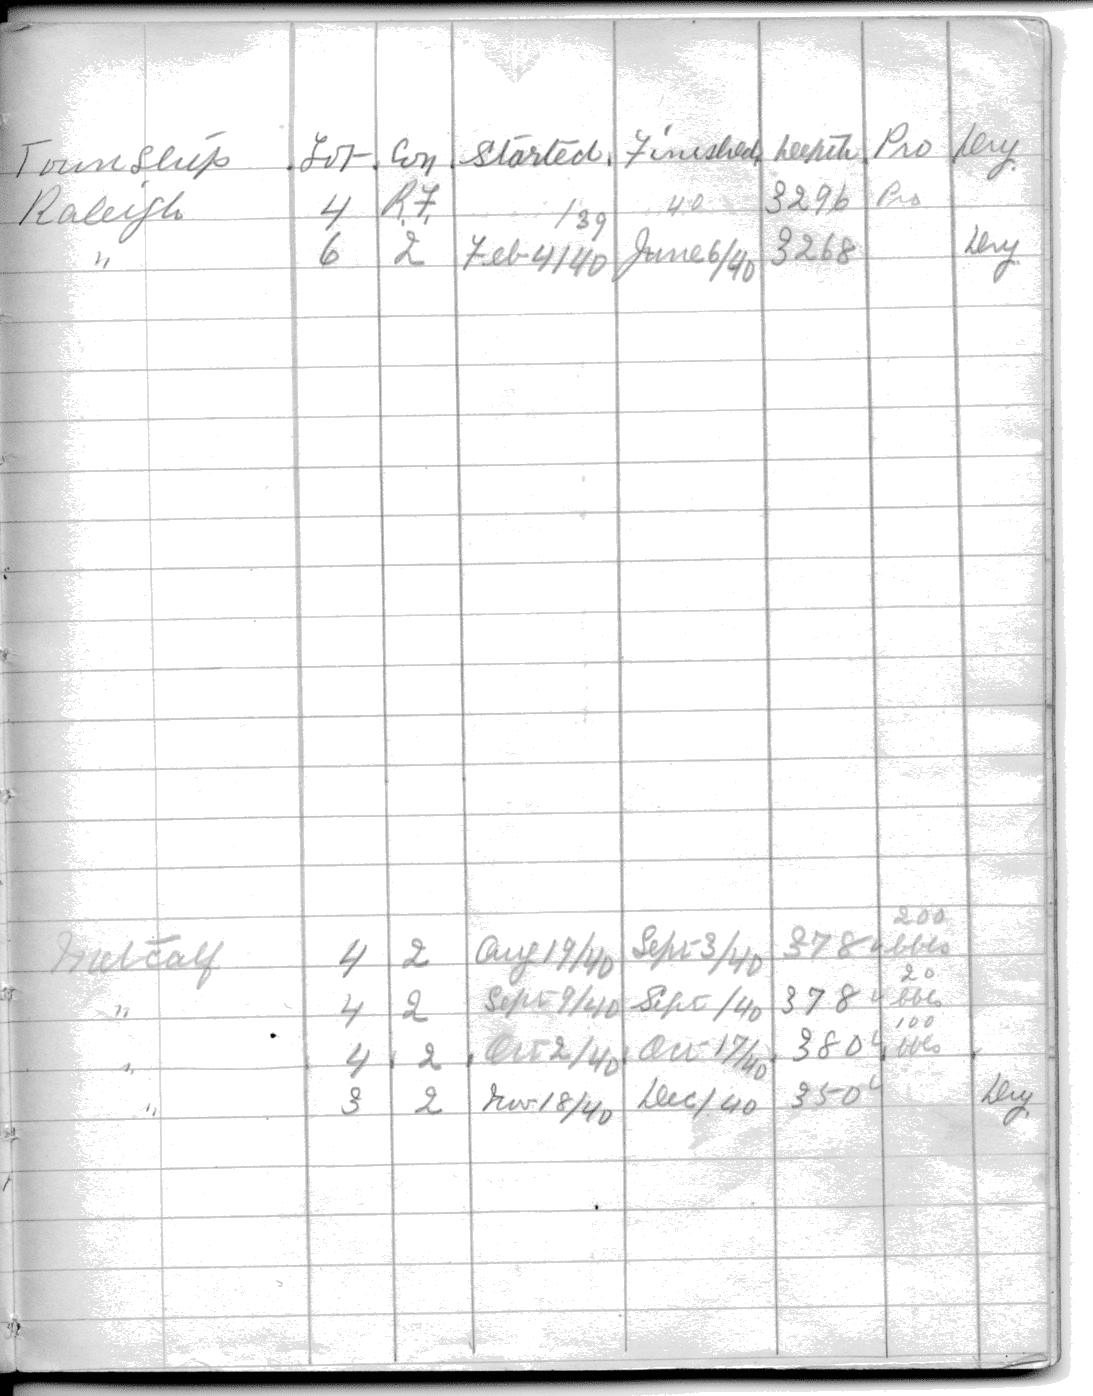 Township Lot Con Started Finished Depth Pro Dry
Raleigh 4 R.F. /39 40 3296 Pro
" 6 2 Feb 4/40 June 6/40 3268 Dry
200
Metcalf 4 2 Aug 19/40 Sept 3/40 378 bbls
20
" 4 2 Sept 9/40 Sept /40 378 bbls
100
" 4 2 Oct 2/40 Oct 17/40 380 bbls
" 3 2 Nov 18/40 Dec/40 350 Dry